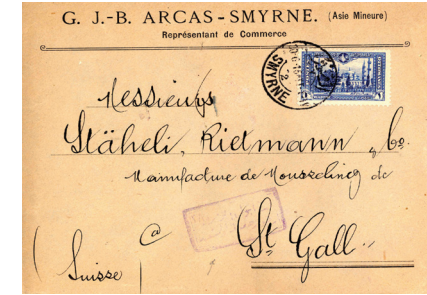 G. J.-B. ARCAS - SMYRNE. (Asie Mineure)
Représentant de Commerce
SMYRNE
Messieurs
Stäheli, Rietmann & Co.
Manufacture de Mousseline de
à St Gall.
(Suisse)